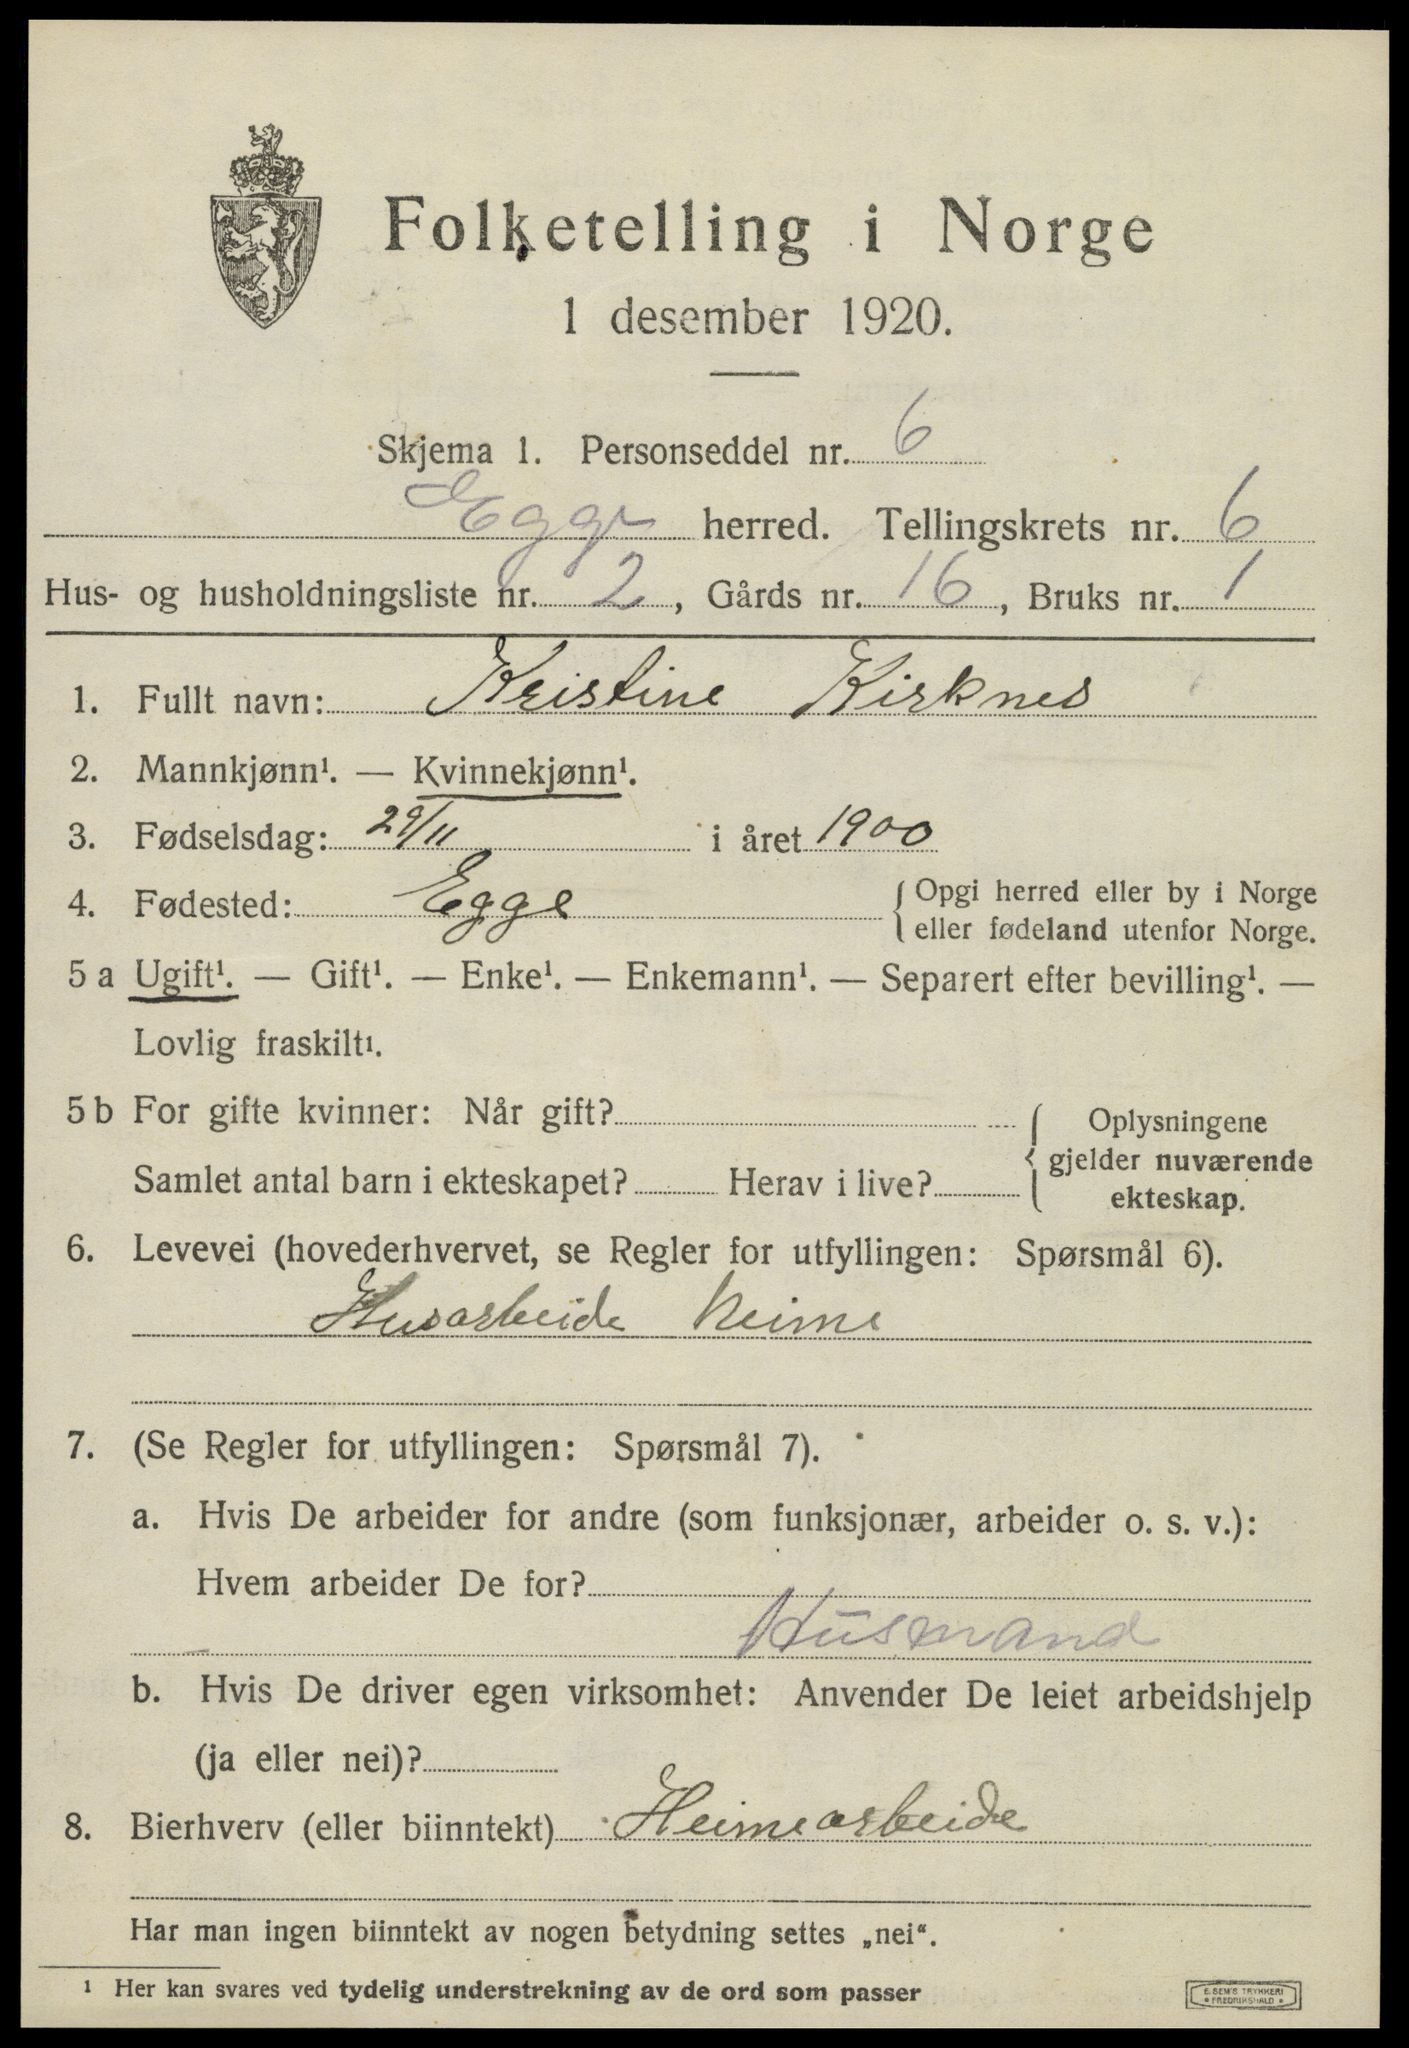 Folketelling i Norge
1 desember 1920.
Skjema 1. Personseddel nr. 6
Egge herred. Tellingskrets nr. 6
Hus- og husholdningsliste nr. 2, Gårds nr. 16, Bruks nr. 1
1. Fullt navn: Kristine Kirknes
2. Mannkjønn¹. — Kvinnekjønn¹.
3. Fødselsdag: 29/11 i året 1900
4. Fødested: Egge { Opgi herred eller by i Norge
eller fødeland utenfor Norge.
5 a Ugift¹. — Gift¹. — Enke¹. — Enkemann¹. — Separert efter bevilling¹. —
Lovlig fraskilt¹.
5 b For gifte kvinner: Når gift? { Oplysningene
gjelder nuværende
Samlet antal barn i ekteskapet? Herav i live? ekteskap.
6. Levevei (hovederhvervet, se Regler for utfyllingen: Spørsmål 6).
Husarbeide heime
7. (Se Regler for utfyllingen: Spørsmål 7).
a. Hvis De arbeider for andre (som funksjonær, arbeider o. s. v.):
Hvem arbeider De for?
Husmand
b. Hvis De driver egen virksomhet: Anvender De leiet arbeidshjelp
(ja eller nei)?
8. Bierhverv (eller biinntekt) Heimearbeide
Har man ingen biinntekt av nogen betydning settes „nei“.
¹ Her kan svares ved tydelig understrekning av de ord som passer
E. SEM'S TRYKKERI
FREDRIKSHALD